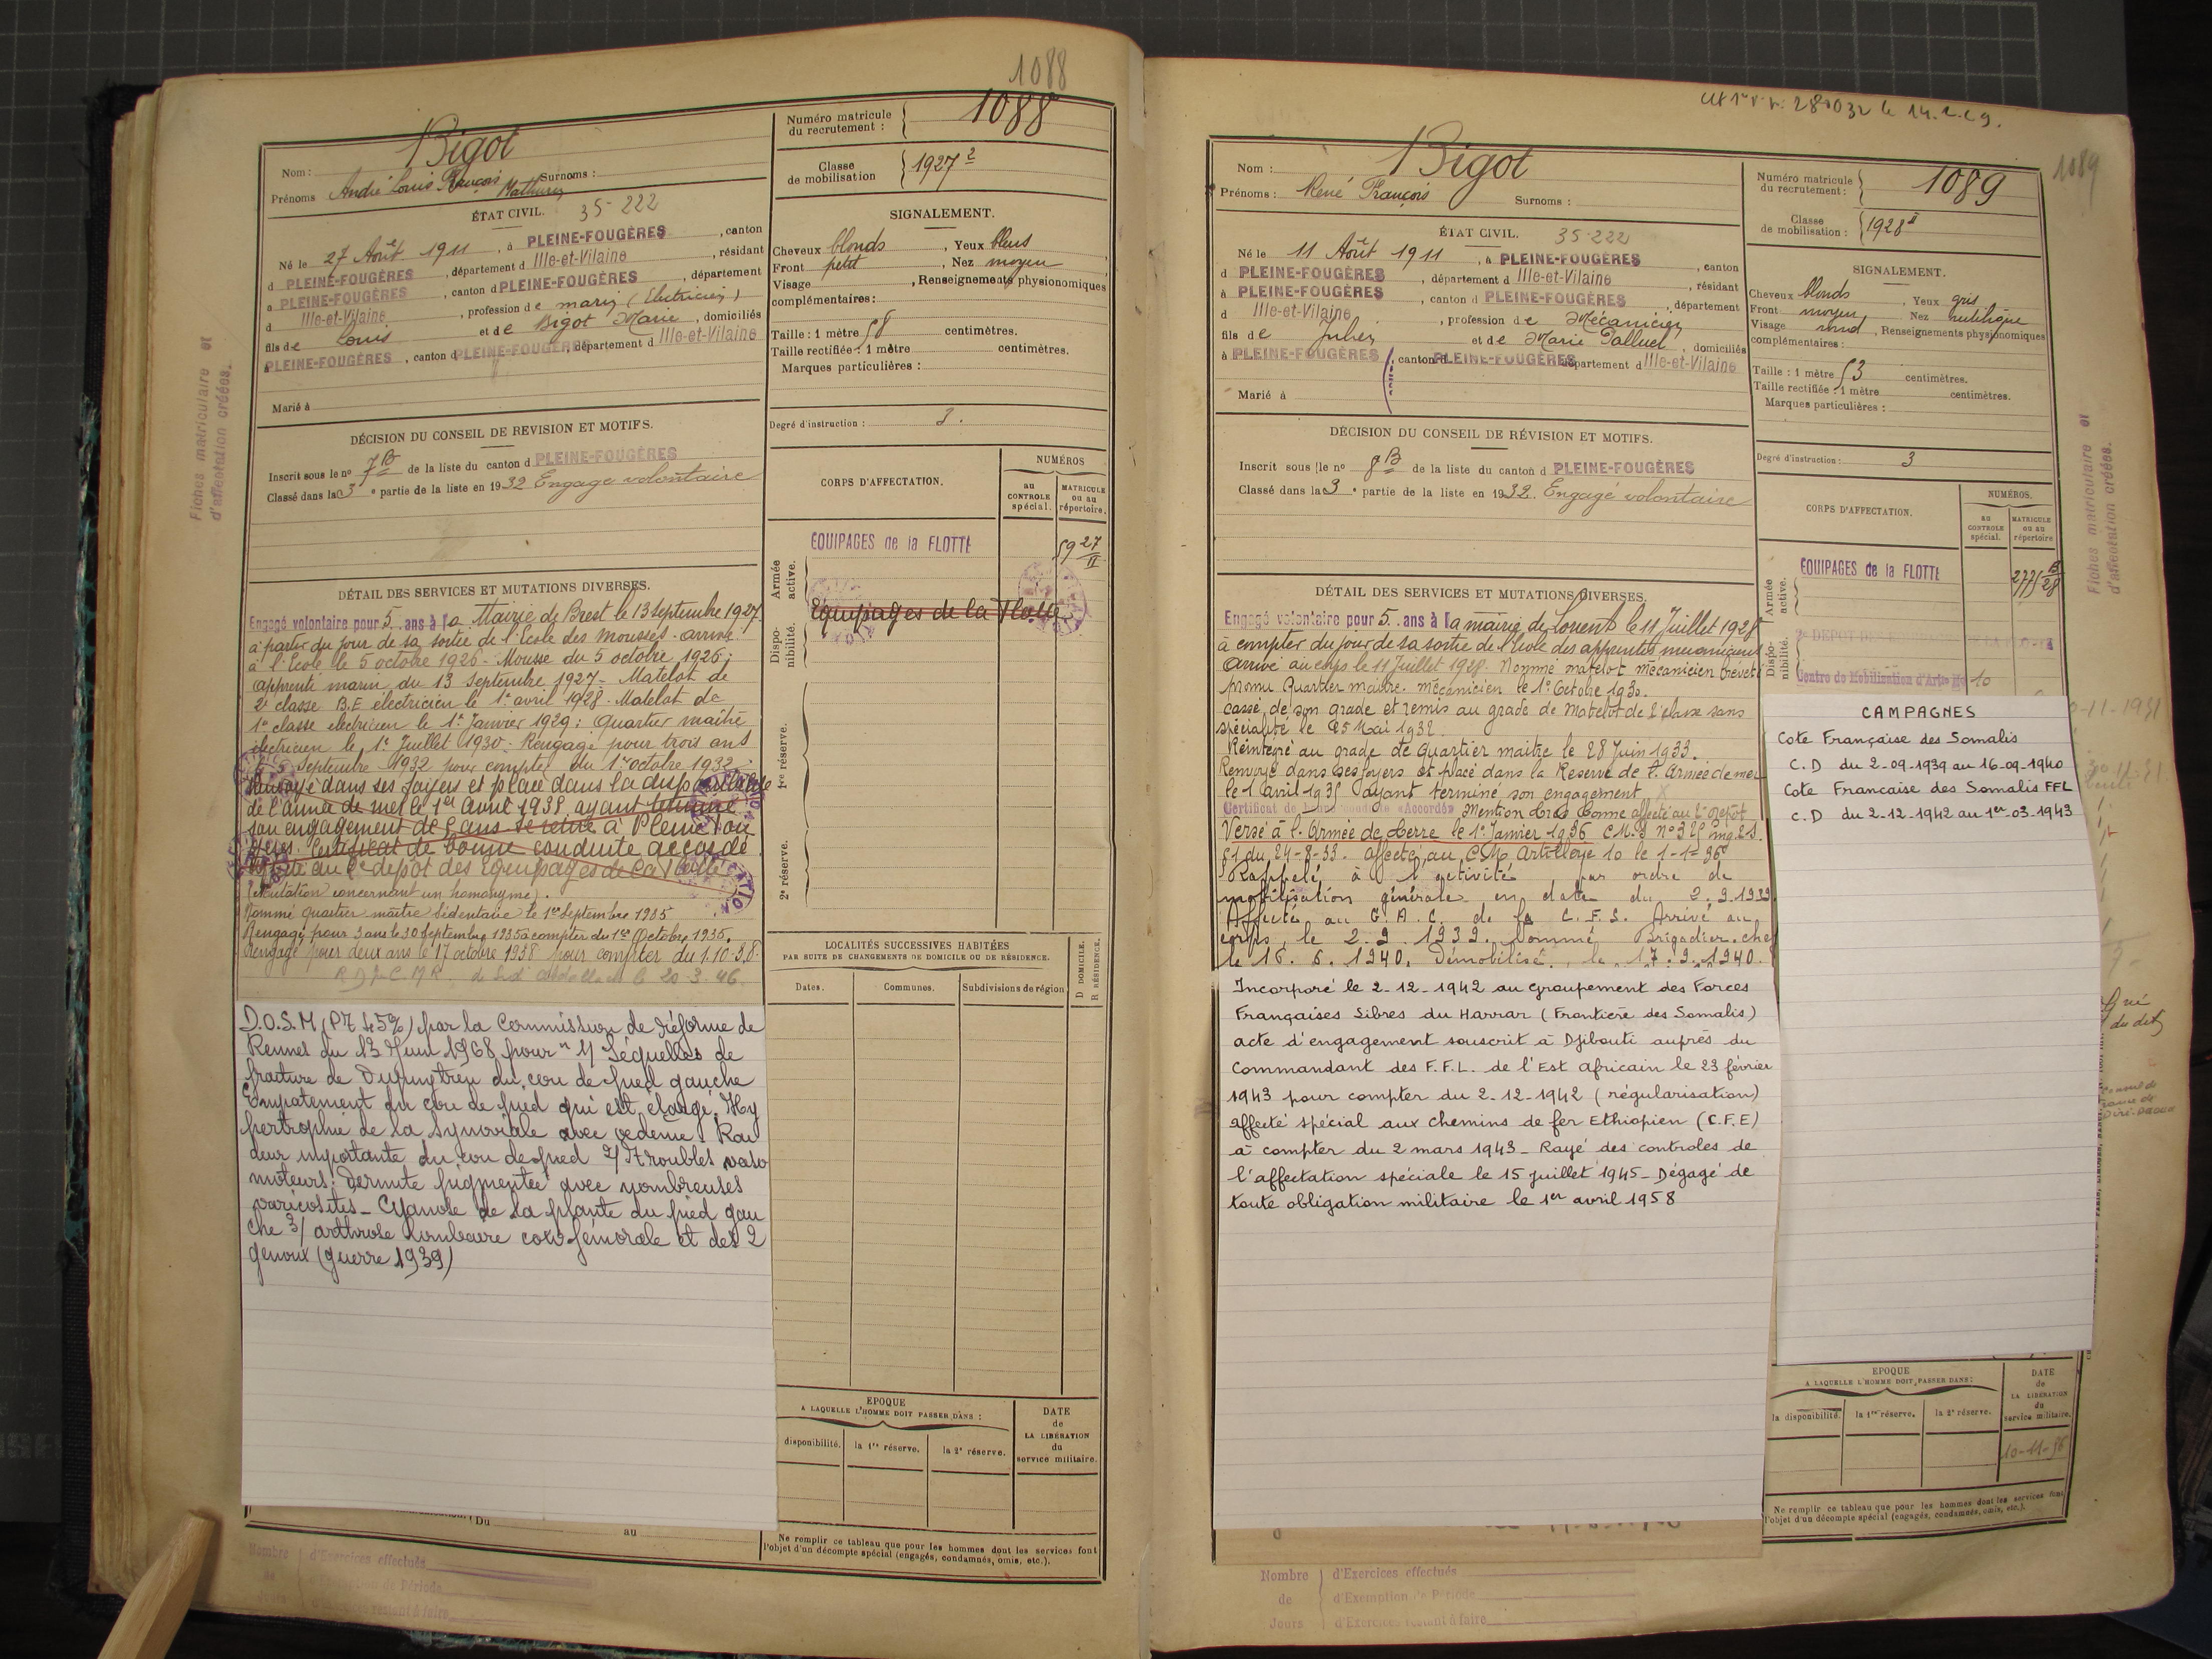 1088
Nom : Bigot
Prénoms André Louis François Mathurin Surnoms :
Numéro matricule du recrutement : 1088
Classe de mobilisation 1927 2
ÉTAT CIVIL. 35-222
Né le 27 Août 1911, à PLEINE-FOUGÈRES, canton
d PLEINE-FOUGÈRES, département d Ille-et-Vilaine, résidant
a PLEINE-FOUGÈRES, canton d PLEINE-FOUGÈRES, département
d Ille-et-Vilaine, profession de marin (Electricien)
fils de Louis et de Bigot Marie, domiciliés
à PLEINE-FOUGÈRES, canton d PLEINE-FOUGÈRES, département d Ille-et-Vilaine
Marié à
SIGNALEMENT.
Cheveux blonds, Yeux bleus
Front petit, Nez moyen
Visage, Renseignements physionomiques
complémentaires :
Taille : 1 mètre 58 centimètres.
Taille rectifiée : 1 mètre centimètres.
Marques particulières :
Degré d'instruction : 3.
DÉCISION DU CONSEIL DE REVISION ET MOTIFS.
Inscrit sous le nº 7 B de la liste du canton d PLEINE-FOUGÈRES
Classé dans la 3e partie de la liste en 1932 Engagé volontaire
CORPS D'AFFECTATION.
NUMÉROS
au CONTROLE spécial.
MATRICULE ou au répertoire.
Armée active.
EQUIPAGES de la FLOTTE
59 27 II
Disponibilité.
Equipages de la Flotte
1re réserve.
2e réserve.
DÉTAIL DES SERVICES ET MUTATIONS DIVERSES.
Engagé volontaire pour 5 ans à la Mairie de Brest le 13 Septembre 1927
à partir du jour de sa sortie de l'Ecole des Mousses. arrivé
à l'Ecole le 5 octobre 1926 - Mousse du 5 octobre 1926;
apprenti marin du 13 Septembre 1927 - Matelot de
2e classe B.E électricien le 1er avril 1928. Matelot de
1re classe electricien le 1er Janvier 1929; Quartier maître
électricien le 1er Juillet 1930 - Rengagé pour trois ans
Septembre 1932 pour compter du 1er octobre 1932
Renvoyé dans ses foyers et placé dans la disponibilité
de l'armée de mer le 1er Avril 1935 ayant terminé
son engagement de 5 ans se retire à Pleine Fou
gères. Certificat de bonne conduite accordé
Affecté au 2e dépôt des Equipages de la Flotte
(Mutation concernant un homonyme).
Nommé quartier maître sédentaire le 1er Septembre 1935
Rengagé pour 3 ans le 30 Septembre 1935 à compter du 1er Octobre 1935.
Rengagé pour deux ans le 17 octobre 1938 pour compter du 1.10.38.
le 20-3-46.
D.O.S.M (PT 45%) par la Commission de réforme de
Rennes du 13 Juin 1968 pour 1/ Séquelles de
fracture de Dupuytren du cou de pied gauche
Empatement du cou de pied qui est élargi. Hy
pertrophie de la synoviale avec oedeme. Rai
deur importante du cou de pied 2/ troubles vaso
moteurs: Dermite pigmentée avec nombreuses
varicosités - Cyanose de la plante du pied gau
che 3/ arthrose lombaire coxo fémorale et des 2
genoux (guerre 1939)
LOCALITÉS SUCCESSIVES HABITÉES
PAR SUITE DE CHANGEMENTS DE DOMICILE OU DE RÉSIDENCE.
Dates. Communes. Subdivisions de région
D DOMICILE.
R RÉSIDENCE.
EPOQUE
A LAQUELLE L'HOMME DOIT PASSER DANS :
disponibilité. la 1re réserve. la 2e réserve.
DATE de LA LIBÉRATION du service militaire.
Du au
Ne remplir ce tableau que pour les hommes dont les services font
l'objet d'un décompte spécial (engagés, condamnés, omis, etc.).
Nombre de Jours
d'Exercices effectués
d'Exemption de Période
d'Exercices restant à faire
Fiches matriculaire et
d'affectation créées.
1089
Nom : Bigot
Prénoms : René François Surnoms :
Numéro matricule du recrutement : 1089
Classe de mobilisation : 1928 II
ÉTAT CIVIL. 35-222
Né le 11 Août 1911, à PLEINE-FOUGÈRES, canton
d PLEINE-FOUGÈRES, département d Ille-et-Vilaine, résidant
à PLEINE-FOUGÈRES, canton d PLEINE-FOUGÈRES, département
d Ille-et-Vilaine, profession de Mécanicien
fils de Julien et de Marie Palluel, domiciliés
à PLEINE-FOUGÈRES, canton d PLEINE-FOUGÈRES, département d Ille-et-Vilaine
Marié à
SIGNALEMENT.
Cheveux blonds, Yeux gris
Front moyen, Nez rectiligne
Visage rond, Renseignements physionomiques
complémentaires :
Taille : 1 mètre 53 centimètres.
Taille rectifiée : 1 mètre centimètres.
Marques particulières :
Degré d'instruction : 3
DÉCISION DU CONSEIL DE RÉVISION ET MOTIFS.
Inscrit sous le nº 8 B de la liste du canton d PLEINE-FOUGÈRES
Classé dans la 3e partie de la liste en 1932. Engagé volontaire
CORPS D'AFFECTATION.
NUMÉROS.
au CONTROLE spécial.
MATRICULE ou au répertoire
Armée active.
EQUIPAGES de la FLOTTE
2775 B 28
Disponibilité.
Centre de Mobilisation d'Artie Nº 10
DÉTAIL DES SERVICES ET MUTATIONS DIVERSES.
Engagé volontaire pour 5 ans à la mairie de Lorient le 11 Juillet 1928
à compter du jour de sa sortie de l'école des apprentis mécaniciens
Arrivé au corps le 11 Juillet 1928. Nommé matelot mécanicien breveté
promu Quartier maître mécanicien le 1er Octobre 1930.
cassé de son grade et remis au grade de Matelot de 2e classe sans
spécialité le 25 Mai 1932.
Réintégré au grade de Quartier maître le 28 Juin 1933.
Renvoyé dans ses foyers et placé dans la Réserve de l'Armée de mer
le 1 avril 1935 ayant terminé son engagement
Certificat de bonne conduite «Accordé» Mention très bonne affecté au 2e Dépôt
Versé à l'Armée de terre le 1er Janvier 1936 C.M.
51 du 24-8-33. affecté au C.M. Artillerie 10 le 1-1-36
Rappelé à l'activité par ordre de
mobilisation générale en date du 2.9.1939
Affecté au G.A.C. de la C.F.S. Arrivé au
corps le 2.9.1939. Nommé Brigadier.chef
le 16.6.1940. Démobilisé le 17.9.1940.
Incorporé le 2-12-1942 au groupement des Forces
Françaises Libres du Harrar (Frontière des Somalis)
acte d'engagement souscrit à Djibouti auprès du
Commandant des F.F.L. de l'Est africain le 23 février
1943 pour compter du 2-12-1942 (régularisation)
affecté spécial aux chemins de fer Ethiopien (C.F.E)
à compter du 2 mars 1943 - Rayé des controles de
l'affectation spéciale le 15 juillet 1945 - Dégagé de
toute obligation militaire le 1er avril 1958
CAMPAGNES
Cote Française des Somalis
C.D du 2-09-1939 au 16-09-1940
Cote Francaise des Somalis FFL
C.D du 2-12-1942 au 1er-03-1943
EPOQUE
A LAQUELLE L'HOMME DOIT PASSER DANS :
la disponibilité. la 1re réserve. la 2e réserve.
DATE de LA LIBÉRATION du service militaire.
10-11-56
Ne remplir ce tableau que pour les hommes dont les services font
l'objet d'un décompte spécial (engagés, condamnés, omis, etc.).
Nombre de Jours
d'Exercices effectués
d'Exemption de Période
d'Exercices restant à faire
Fiches matriculaire et
d'affectation créées.